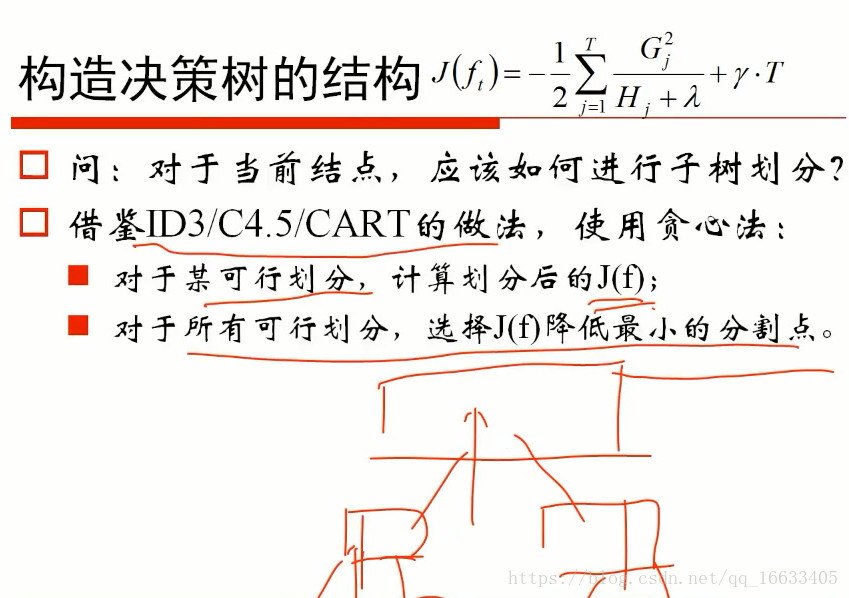 构造决策树的结构 J(f_t) = -\frac{1}{2}\sum_{j=1}^{T}\frac{G_j^2}{H_j+\lambda}+\gamma\cdot T
问：对于当前结点，应该如何进行子树划分？
借鉴ID3/C4.5/CART的做法，使用贪心法：
对于某可行划分，计算划分后的J(f)；
对于所有可行划分，选择J(f)降低最小的分割点。
https://blog.csdn.net/qq_16633405